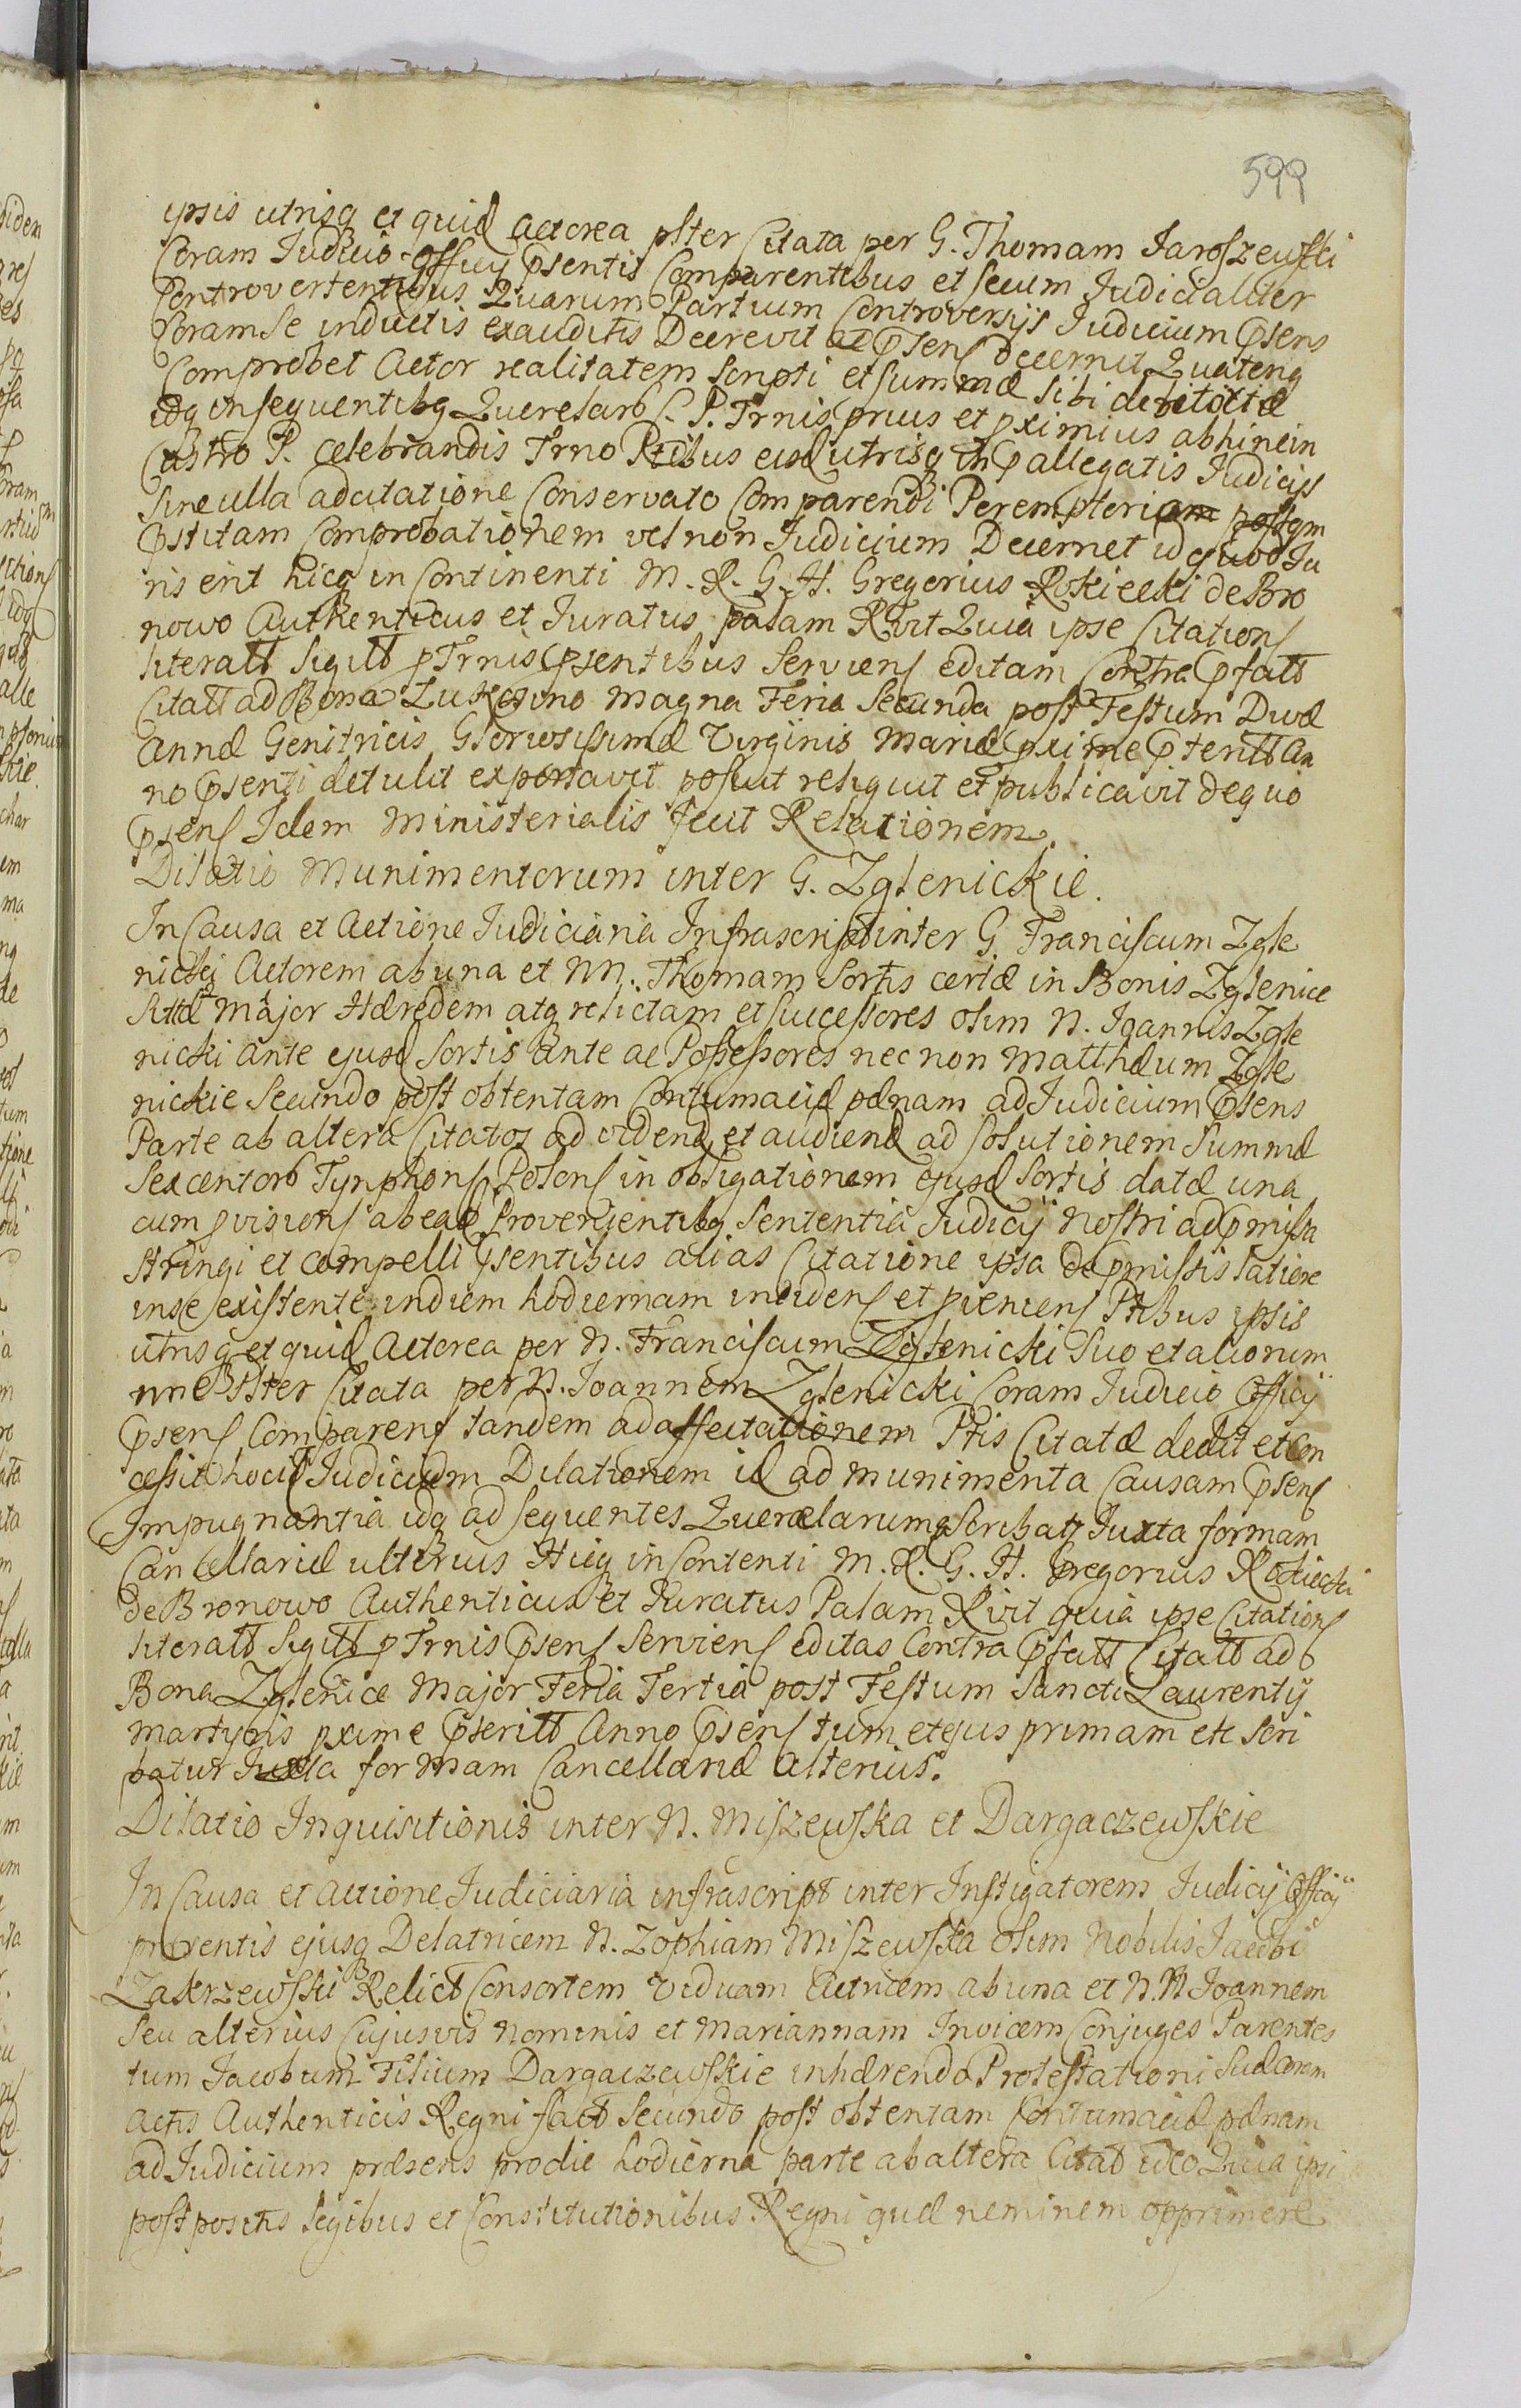 599
ipsis utrisq et quid actorea pster Citata per G. Thomam Jaroszewski
Coram Judicio Officij Psentis Comparentibus et secum Judicialiter
Controvertentibus Quarum Partium Controversijs Judicium Psens
Coram Se inductis exauditis Decrevit ac Psens decernit Quatenq
Comprobet Actor realitatem Scripti et summæ sibi debitoriæ
idq insequentibq Querelarb S. P. Trnis prius et pximius abhinc in
Castro P. celebrandis Trno Ptibus eisd utrisq in P allegatis Judicijs
sine ulla adcitatione Conservato Comparendi Peremptoriam post qm
Pstitam Comprobationem vel non Judicium Decernet id quod Ju
ris erit hicq in Continenti M. R. G. H. Gregorius Rokicki de Bro
nowo Authenticus et Juratus palam Rvit Quia ipse Citation
literatt Sigitt p Trnis Psentibus Serviens editam Contra Pfatt
Citatt ad Bona Lukoszyno Magna Feria Secunda post Festum Divæ
Annæ Genitricis Gloriosissimæ Virginis Mariæ pxime Pteritt An
no Psenti detulit exportavit posuit reliquit et publicavit de quo
Psens Idem Ministerialis fecit Relationem.
Dilatio Munimentorum inter G. Zglenickie.
In Causa et Actione Judiciaria Infrascript inter G. Franciscum Zgle
nicki Actorem ab una et NN. Thomam Sortis certæ in Bonis Zglenice
Major Hæredem atq relictam et successores olim N. Joannis Zgle
nicki ante ejusd Sortis ante ac Possessores nec non Matthæum Zgle
nickie Secundo post obtentam Contumaciæ pænam ad Judicium Psens
Parte ab altera Citatos ad vidend et audiend ad solutionem Summæ
Sexcentorb Tynphons Polons in obligationem ejusd Sortis datæ una
cum pvisions ab ead Provenientibq Sententia Judicij Nostri ad Pmissa
stringi et compelli Psentibus alias Citatione ipsa de Pmissis latiore
in se existente in diem hodiernam incidens et pveniens Ptibus ipsis
utrisq et quid Actorea per N. Franciscum Zglenicki Suo et aliorum
nne Pster Citata per N. Joannem Zglenicki Coram Judicio Officij
Psens Comparens tandem ad affectationem Ptis Citatæ dedit et Con
cessit hocce Judicium Dilationem id ad munimenta Causam Psens
Impugnantia idq ad sequentes Querælarum Scribatr Juxta formam
Cancellariæ ulterius Hicq in Contenti M. R. G. H. Gregorius Rokicki
de Bronowo Authenticus et Juratus Palam Rvit quia ipse Citations
literatt Sigitt p Trnis Psens Serviens editas Contra Pfatt Citatt ad
Bona Zglenice Major Feria Tertia post Festum Sancti Laurentij
Martyris pxime Pteritt Anno Psens tum et ejus primam etc Scri
batur Juxta formam Cancellariæ alterius.
Dilatio Inquisitionis inter N. Miszewska et Dargaczewskie
In Causa et Actione Judiciaria infrascript inter Instigatorem Judicij Officij
præsentis ejusq Delatricem N. Zophiam Miszewska olim Nobilis Jacobi
Zakrzewski Relict Consortem Viduam Actricem ab una et N.N. Joannem
Seu alterius Cujusvis Nominis et Mariannam Invicem Conjuges Parentes
tum Jacobum Filium Dargaczewskie inhærendo Protestationi Suæ Coram
Actis Authenticis Regni fact Secundo post obtentam Contumaciæ pænam
ad Judicium præsens pro die hodierna parte ab altera Citat ideo Quia ipsi
post positis legibus et Constitutionibus Regni quæ neminem opprimere